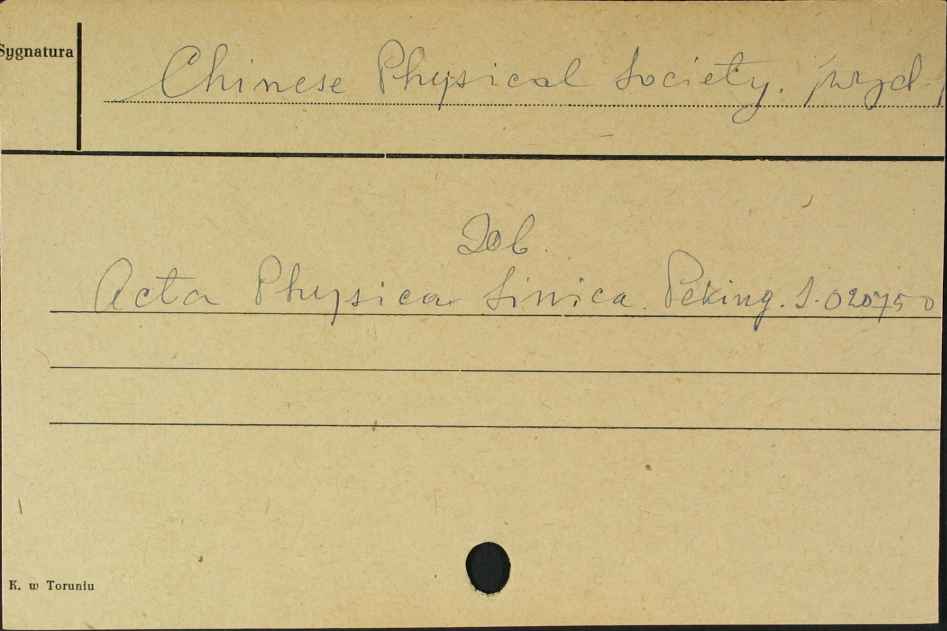 Sygnatura
Chinese Physical Society.
Zob.
Acta Physica Sinica. Peking. S. 020750
K. w Toruniu